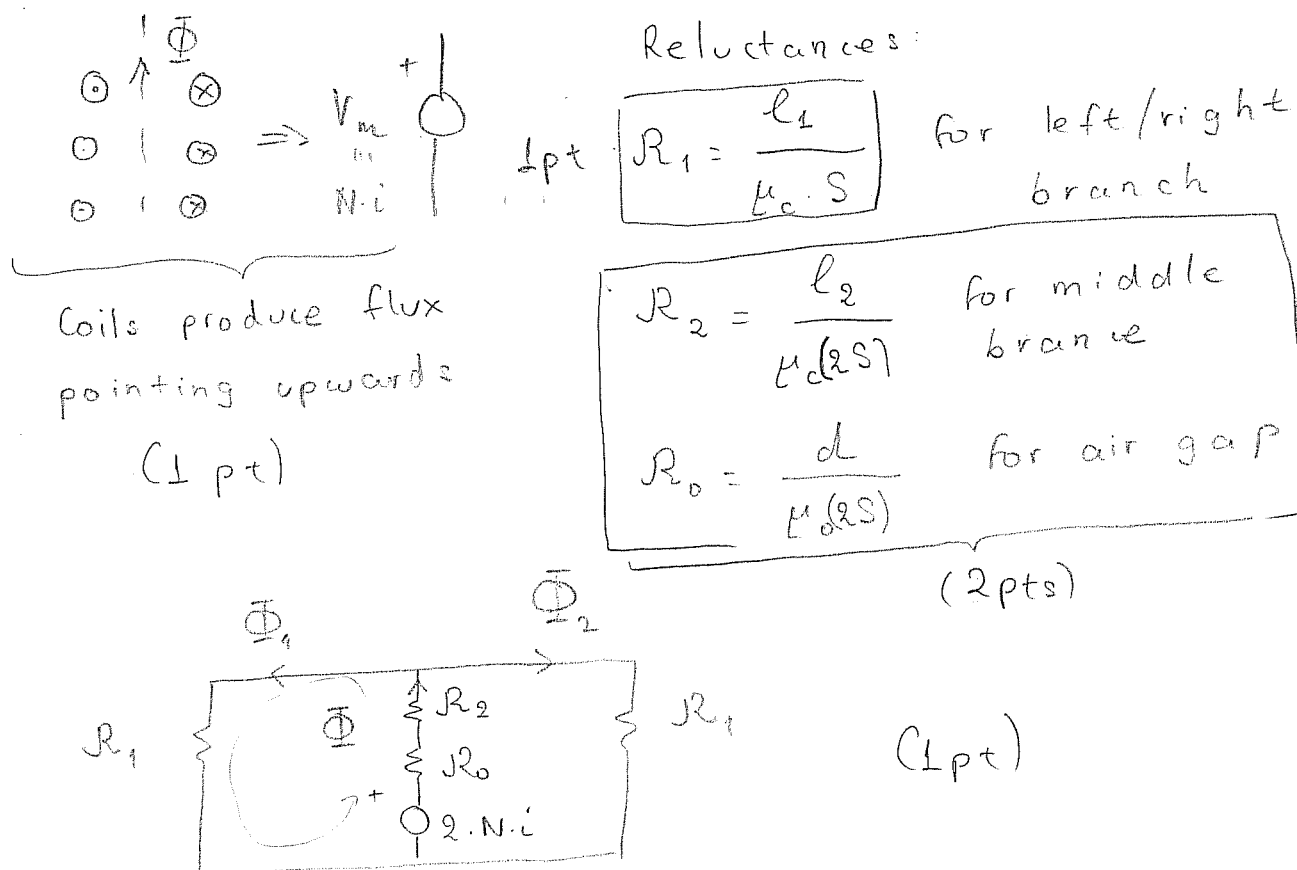 Φ
+
⇒ V_m
N·i
Coils produce flux
pointing upwards
(1 pt)
Reluctances:
1pt R_1 = l_1 / (μ_c · S) for left/right
branch
R_2 = l_2 / (μ_c(2S)) for middle
brance
R_0 = d / (μ_0(2S)) for air gap
(2pts)
Φ_1 Φ_2
R_1 Φ R_2 R_1
R_0
+ 2·N·i
(1pt)